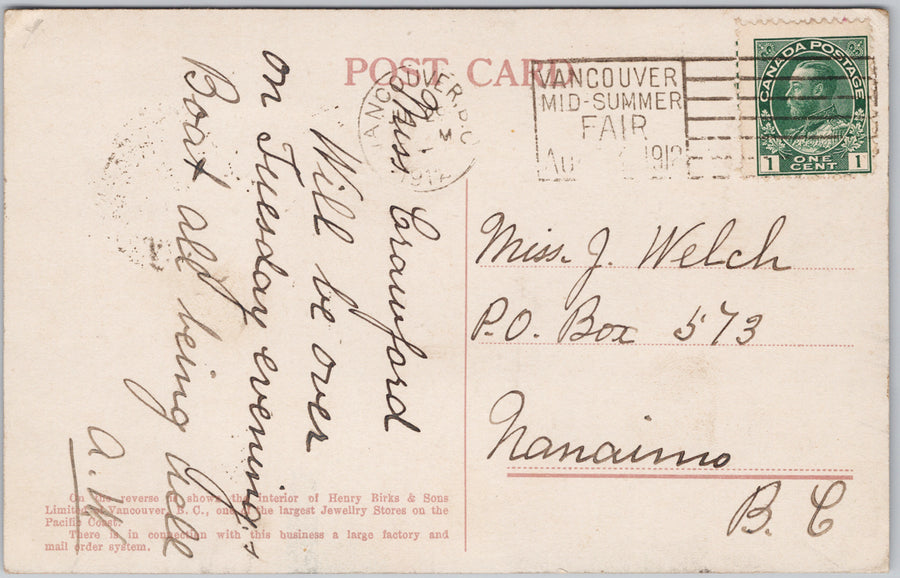 POST CARD
VANCOUVER, B.C.
3
VANCOUVER
MID-SUMMER
FAIR
1912
CANADA POSTAGE
1 ONE CENT 1
Miss Crawford
Will be over
on Tuesday evening's
Boat all being well
A.W.
Miss. J. Welch
P.O. Box 573
Nanaimo
B. C
On the reverse is shown the interior of Henry Birks & Sons
Limited, Vancouver, B. C., one of the largest Jewellry Stores on the
Pacific Coast.
There is in connection with this business a large factory and
mail order system.